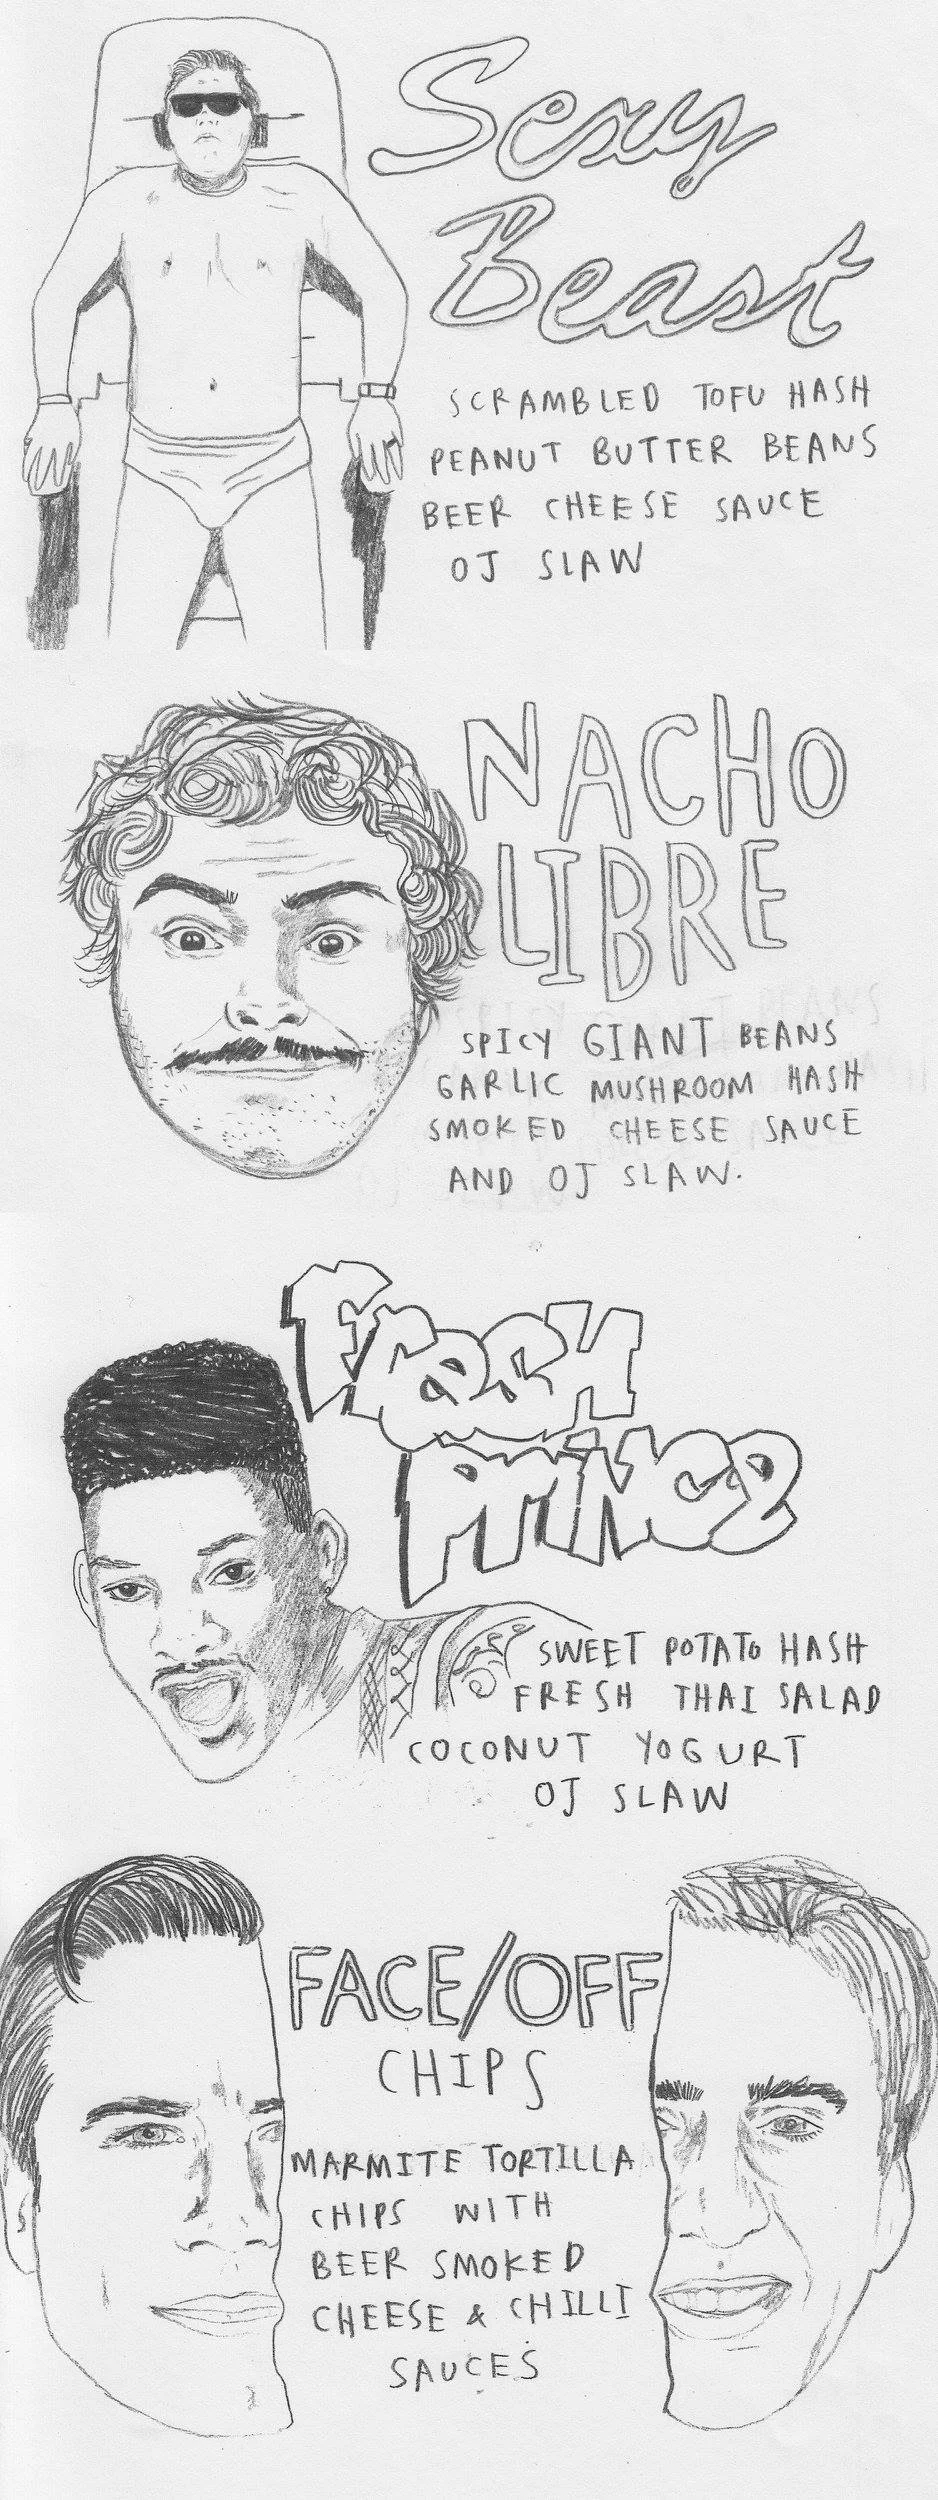 Sexy
Beast
SCRAMBLED TOFU HASH
PEANUT BUTTER BEANS
BEER CHEESE SAUCE
OJ SLAW
NACHO
LIBRE
SPICY GIANT BEANS
GARLIC MUSHROOM HASH
SMOKED CHEESE SAUCE
AND OJ SLAW.
FresH
PriNce
SWEET POTATO HASH
FRESH THAI SALAD
COCONUT YOGURT
OJ SLAW
FACE/OFF
CHIPS
MARMITE TORTILLA
CHIPS WITH
BEER SMOKED
CHEESE & CHILLI
SAUCES